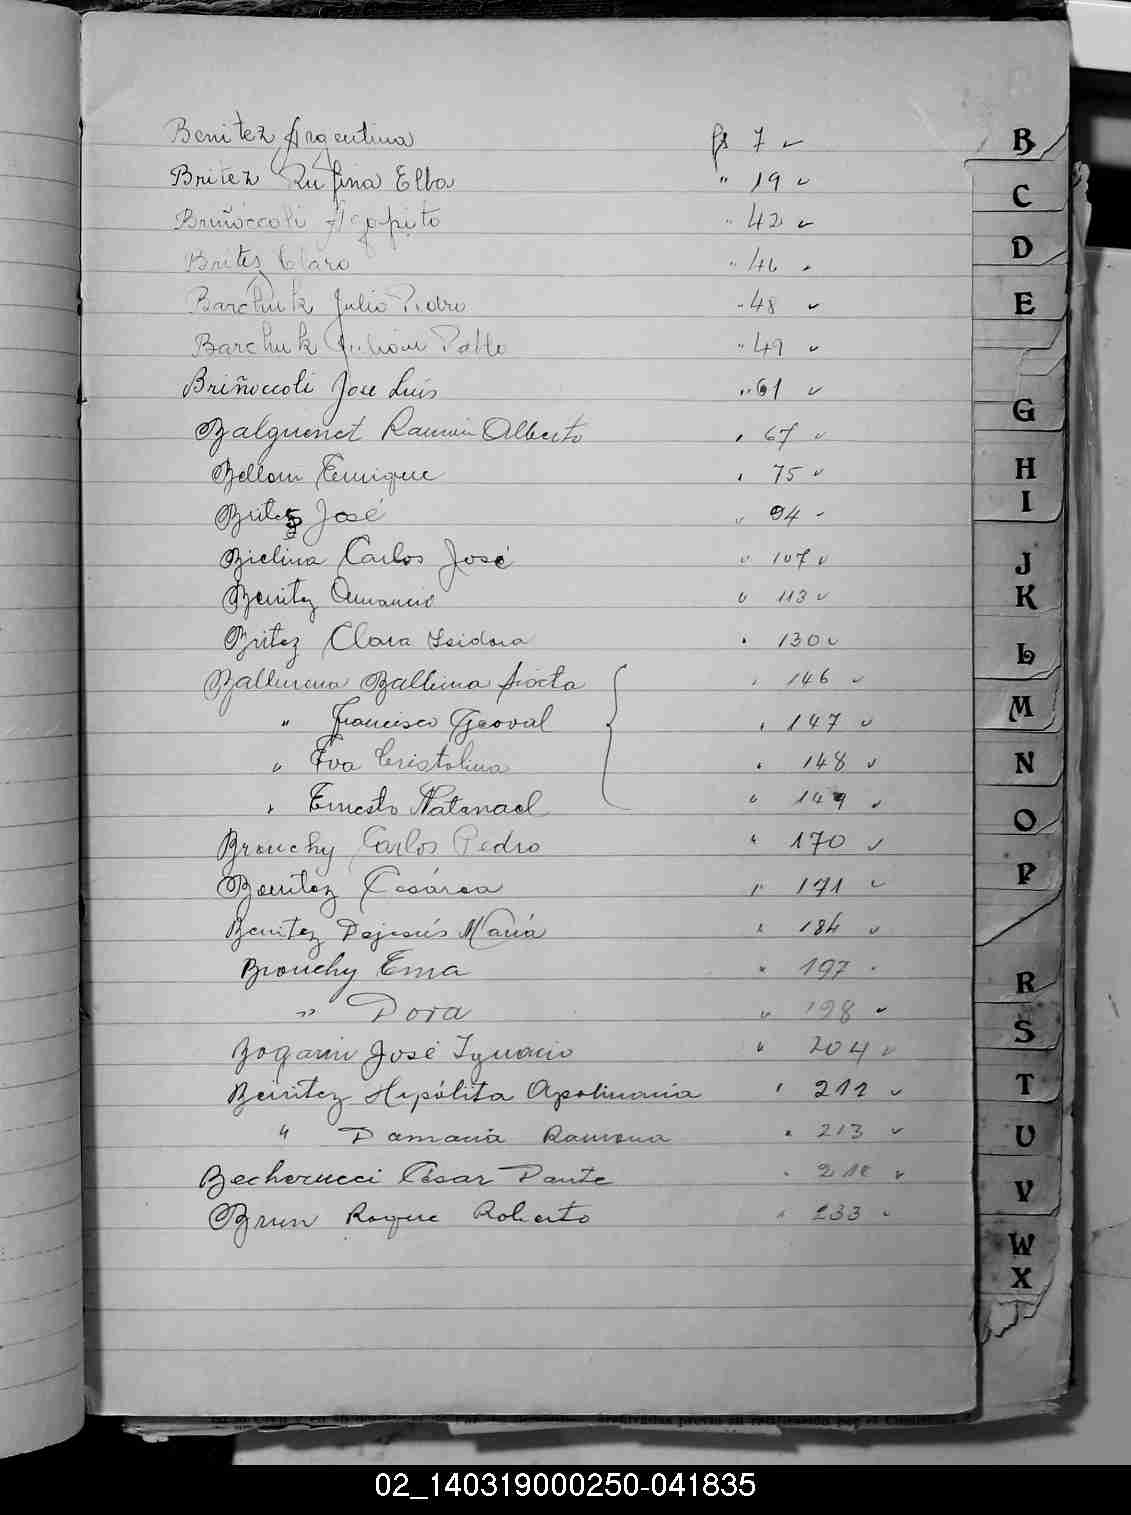 Benitez Argentina fs 7 ✓
Britez Rufina Elba " 19 ✓
Bruñoccoli Agapito " 42 ✓
Britez Claro " 46
Barchuk Julio Pedro " 48 ✓
Barchuk Pablo " 49 ✓
Briñoccoli Jose Luis " 61 ✓
Balquenet Ramón Alberto " 67 ✓
Bellom Enrique " 75 ✓
Britez José " 94 ✓
Bielina Carlos José " 107 ✓
Benitez Amancio " 113 ✓
Britez Clara Isidora " 130 ✓
Balbuena Sixta " 146 ✓
" Francisco " 147 ✓
" Eva Cristolina " 148 ✓
" Ernesto Natanael " 149 ✓
Brouchy Carlos Pedro " 170 ✓
Benitez Cesárea " 171 ✓
Benitez Dejesús María " 184 ✓
Brouchy Ema " 197
" Dora " 198 ✓
Bogarin José Ignacio " 204 ✓
Benitez Hipólita Apolinaria " 211 ✓
" Damacia Ramona " 213 ✓
Becherucci César Dante " ✓
Brun Roque Roberto " 233 ✓
B
C
D
E
G
H
I
J
K
L
M
N
O
P
R
S
T
U
V
W
X
02_140319000250-041835